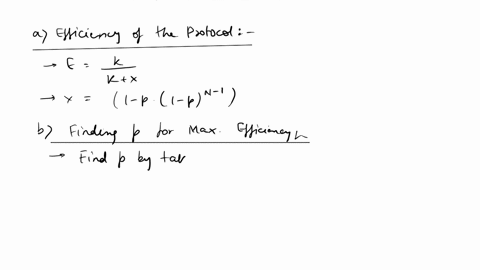 a) Efficiency of the Protocol:-
→ E = k / k+x
→ x = (1-p.(1-p)^N-1)
b) Finding p for Max. Efficiency
→ Find p by tak